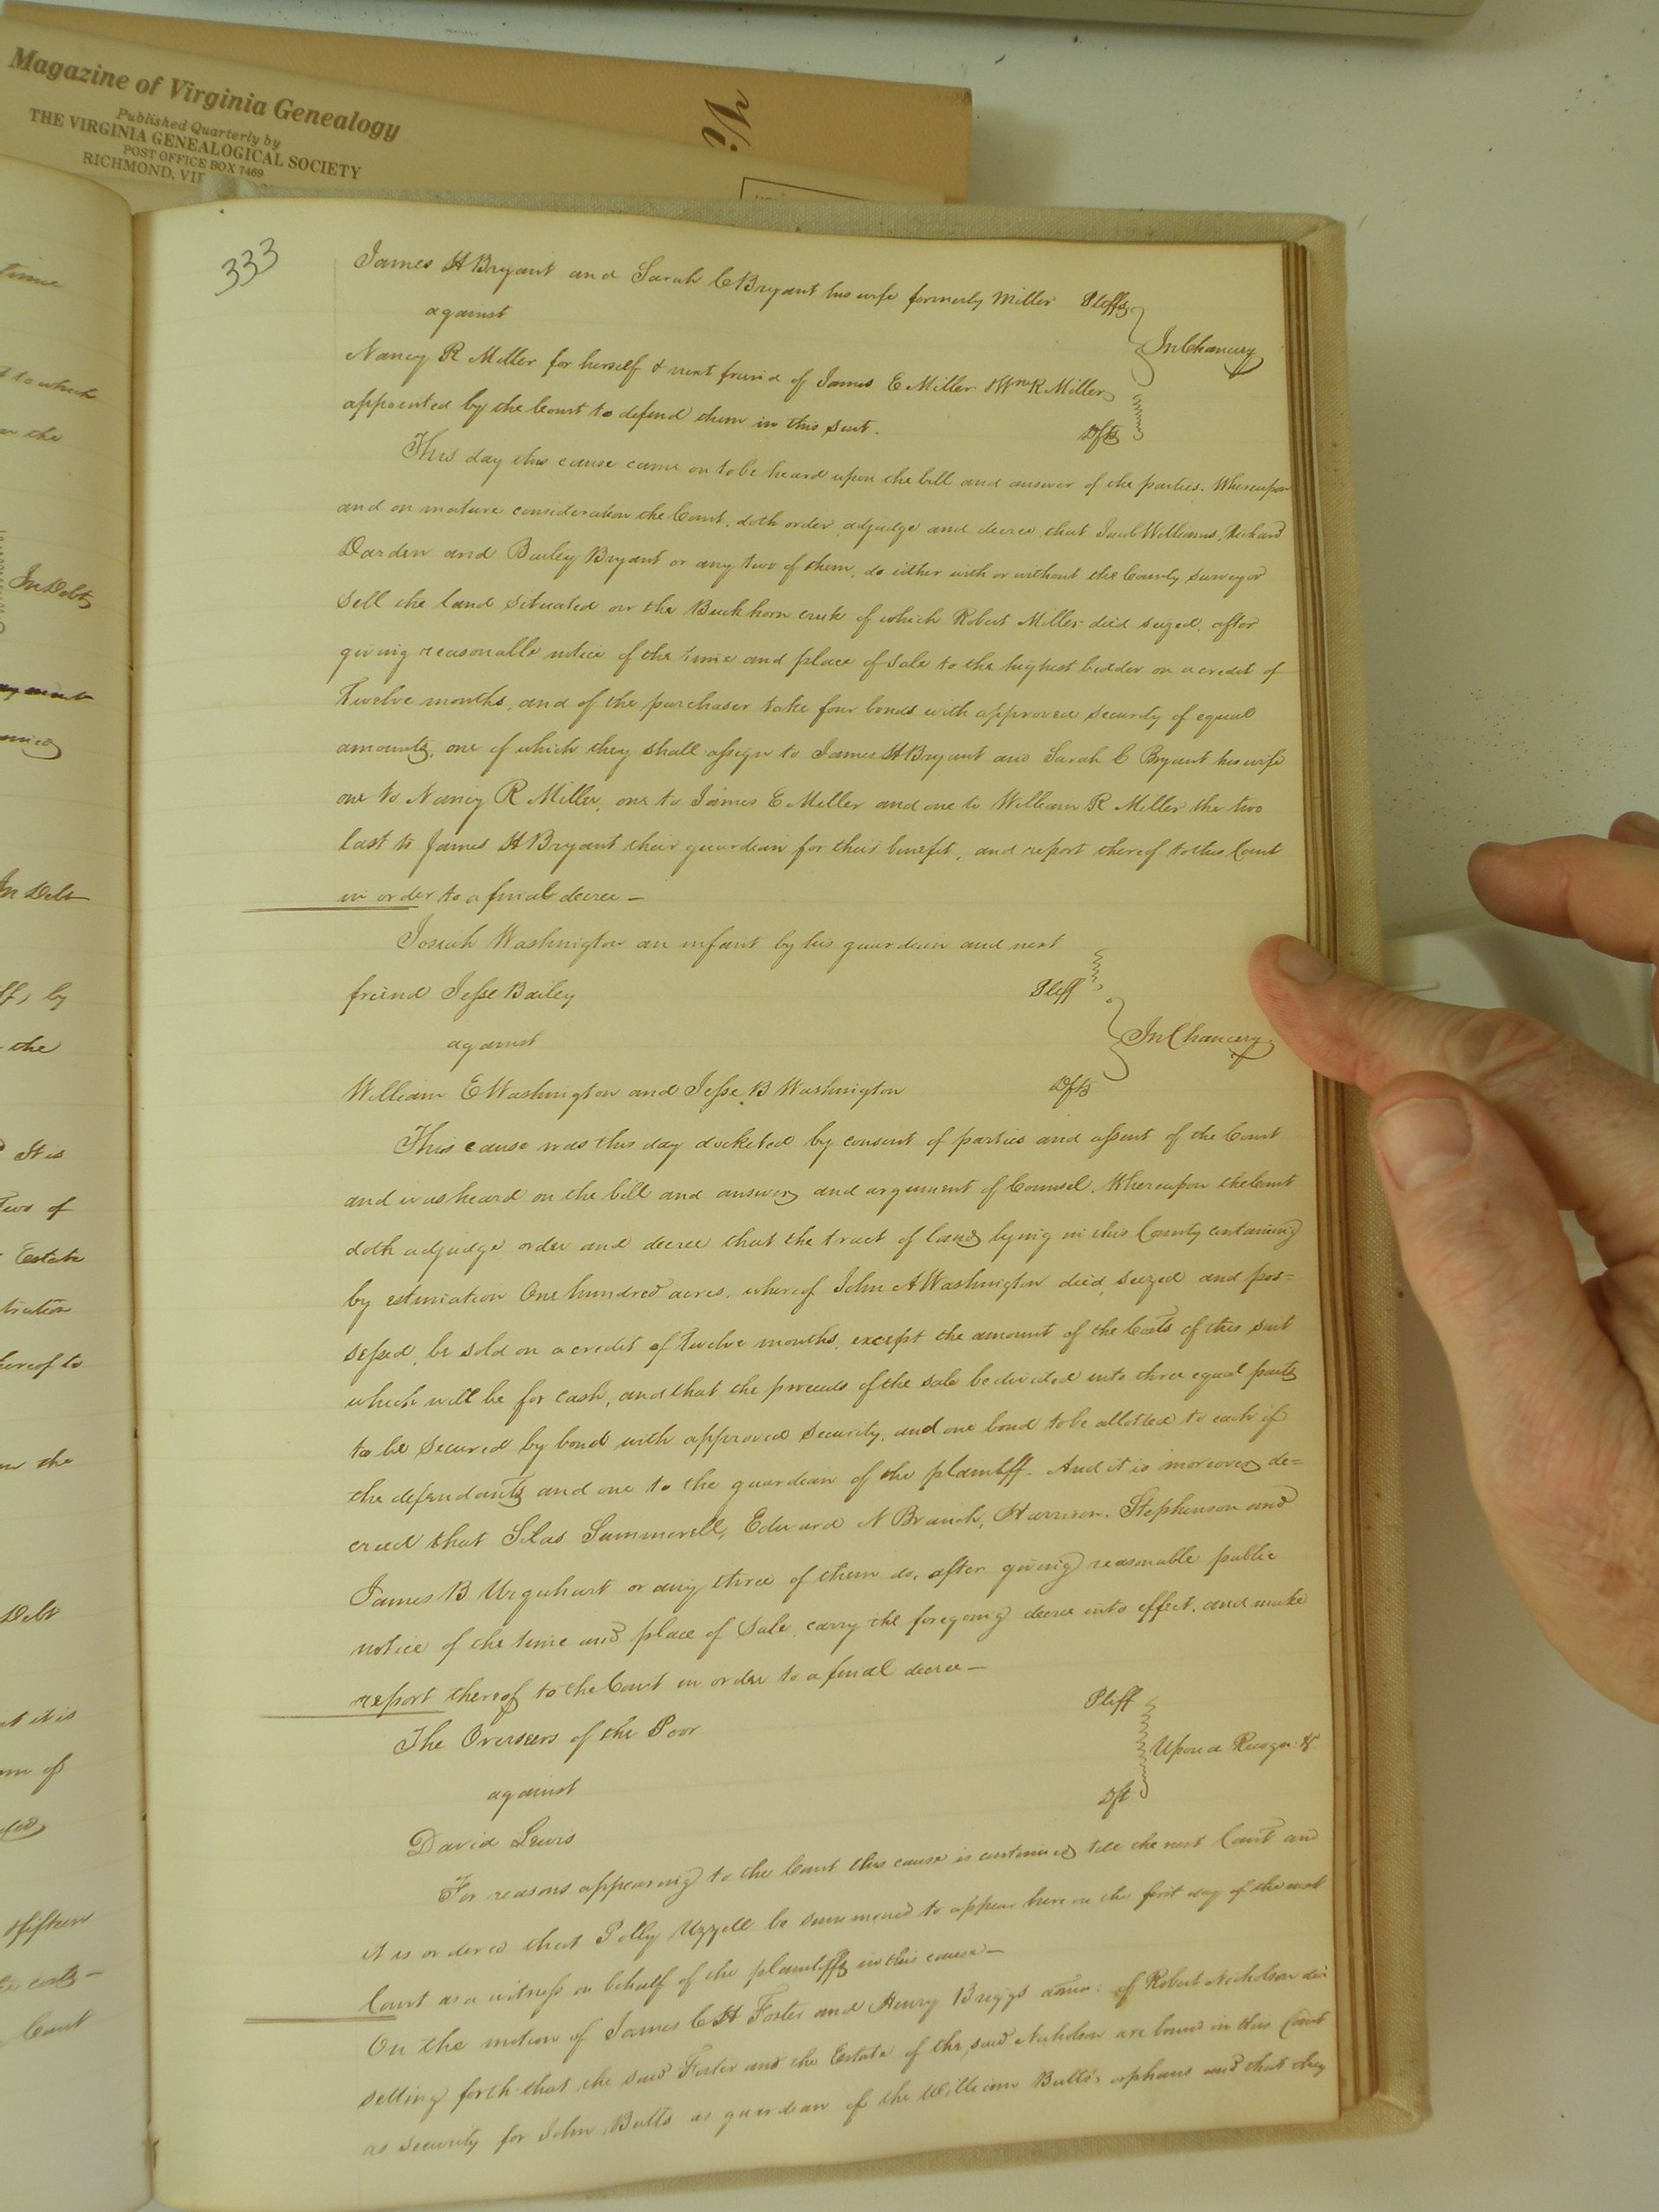 Magazine of Virginia Genealogy
Published Quarterly by
THE VIRGINIA GENEALOGICAL SOCIETY
POST OFFICE BOX 7469
RICHMOND, VI
333
James H Bryant and Sarah C Bryant his wife formerly Miller Pltffs
against
In Chancery
Nancy R Miller for herself & next friend of James E Miller & Wm R Miller
appointed by the Court to defend them in this suit. Dfts
This day this cause came on to be heard upon the bill and answer of the parties. Whereupon
and on mature consideration the Court, doth order, adjudge and decree that Jacob Williams, Richard
Darden and Bailey Bryant or any two of them, do either with or without the County surveyor
sell the land situated on the Buckhorn creek of which Robert Miller died seized, after
giving reasonable notice of the time and place of sale to the highest bidder on a credit of
Twelve months, and of the purchaser take four bonds with approved security of equal
amounts, one of which they shall assign to James H Bryant and Sarah C Bryant his wife
one to Nancy R Miller, one to James E Miller and one to William R Miller the two
last to James H Bryant their guardian for their benefit, and report thereof to this Court
in order to a final decree —
Josiah Washington an infant by his guardian and next
friend Jesse Bailey Pltff
against
In Chancery
William E Washington and Jesse B Washington Dfts
This cause was this day docketed by consent of parties and assent of the Court
and was heard on the bill and answers and argument of Counsel. Whereupon the Court
doth adjudge order and decree that the tract of land lying in this County containing
by estimation One hundred acres, whereof John A Washington died seized and pos=
sessed, be sold on a credit of Twelve months, except the amount of the Costs of this suit
which will be for cash, and that the proceeds of the sale be divided into three equal parts
to be secured by bond with approved security, and one bond to be allotted to each of
the defendants and one to the guardian of the plaintiff. And it is moreover de=
creed that Silas Summerell, Edward N Branch, Harrison Stephenson and
James B Urquhart or any three of them do, after giving reasonable public
notice of the time and place of sale, carry the foregoing decree into effect, and make
report thereof to the Court in order to a final decree —
The Overseers of the Poor Pltff
against
Upon a Recogn: &
David Lewis Dft
For reasons appearing to the Court this cause is continued till the next Court and
it is ordered that Polly Uzzell be summoned to appear here on the first day of the next
Court as a witness on behalf of the plaintiffs in this cause —
On the motion of James C H Foster and Henry Briggs admr: of Robert Nicholson
setting forth that the said Foster and the Estate of the said Nicholson are bound in this Court
as security for John Butts as guardian of the William Butts's orphans and that they